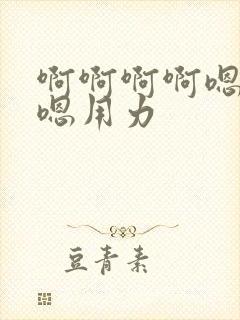 啊啊啊啊嗯
嗯用力
豆青素